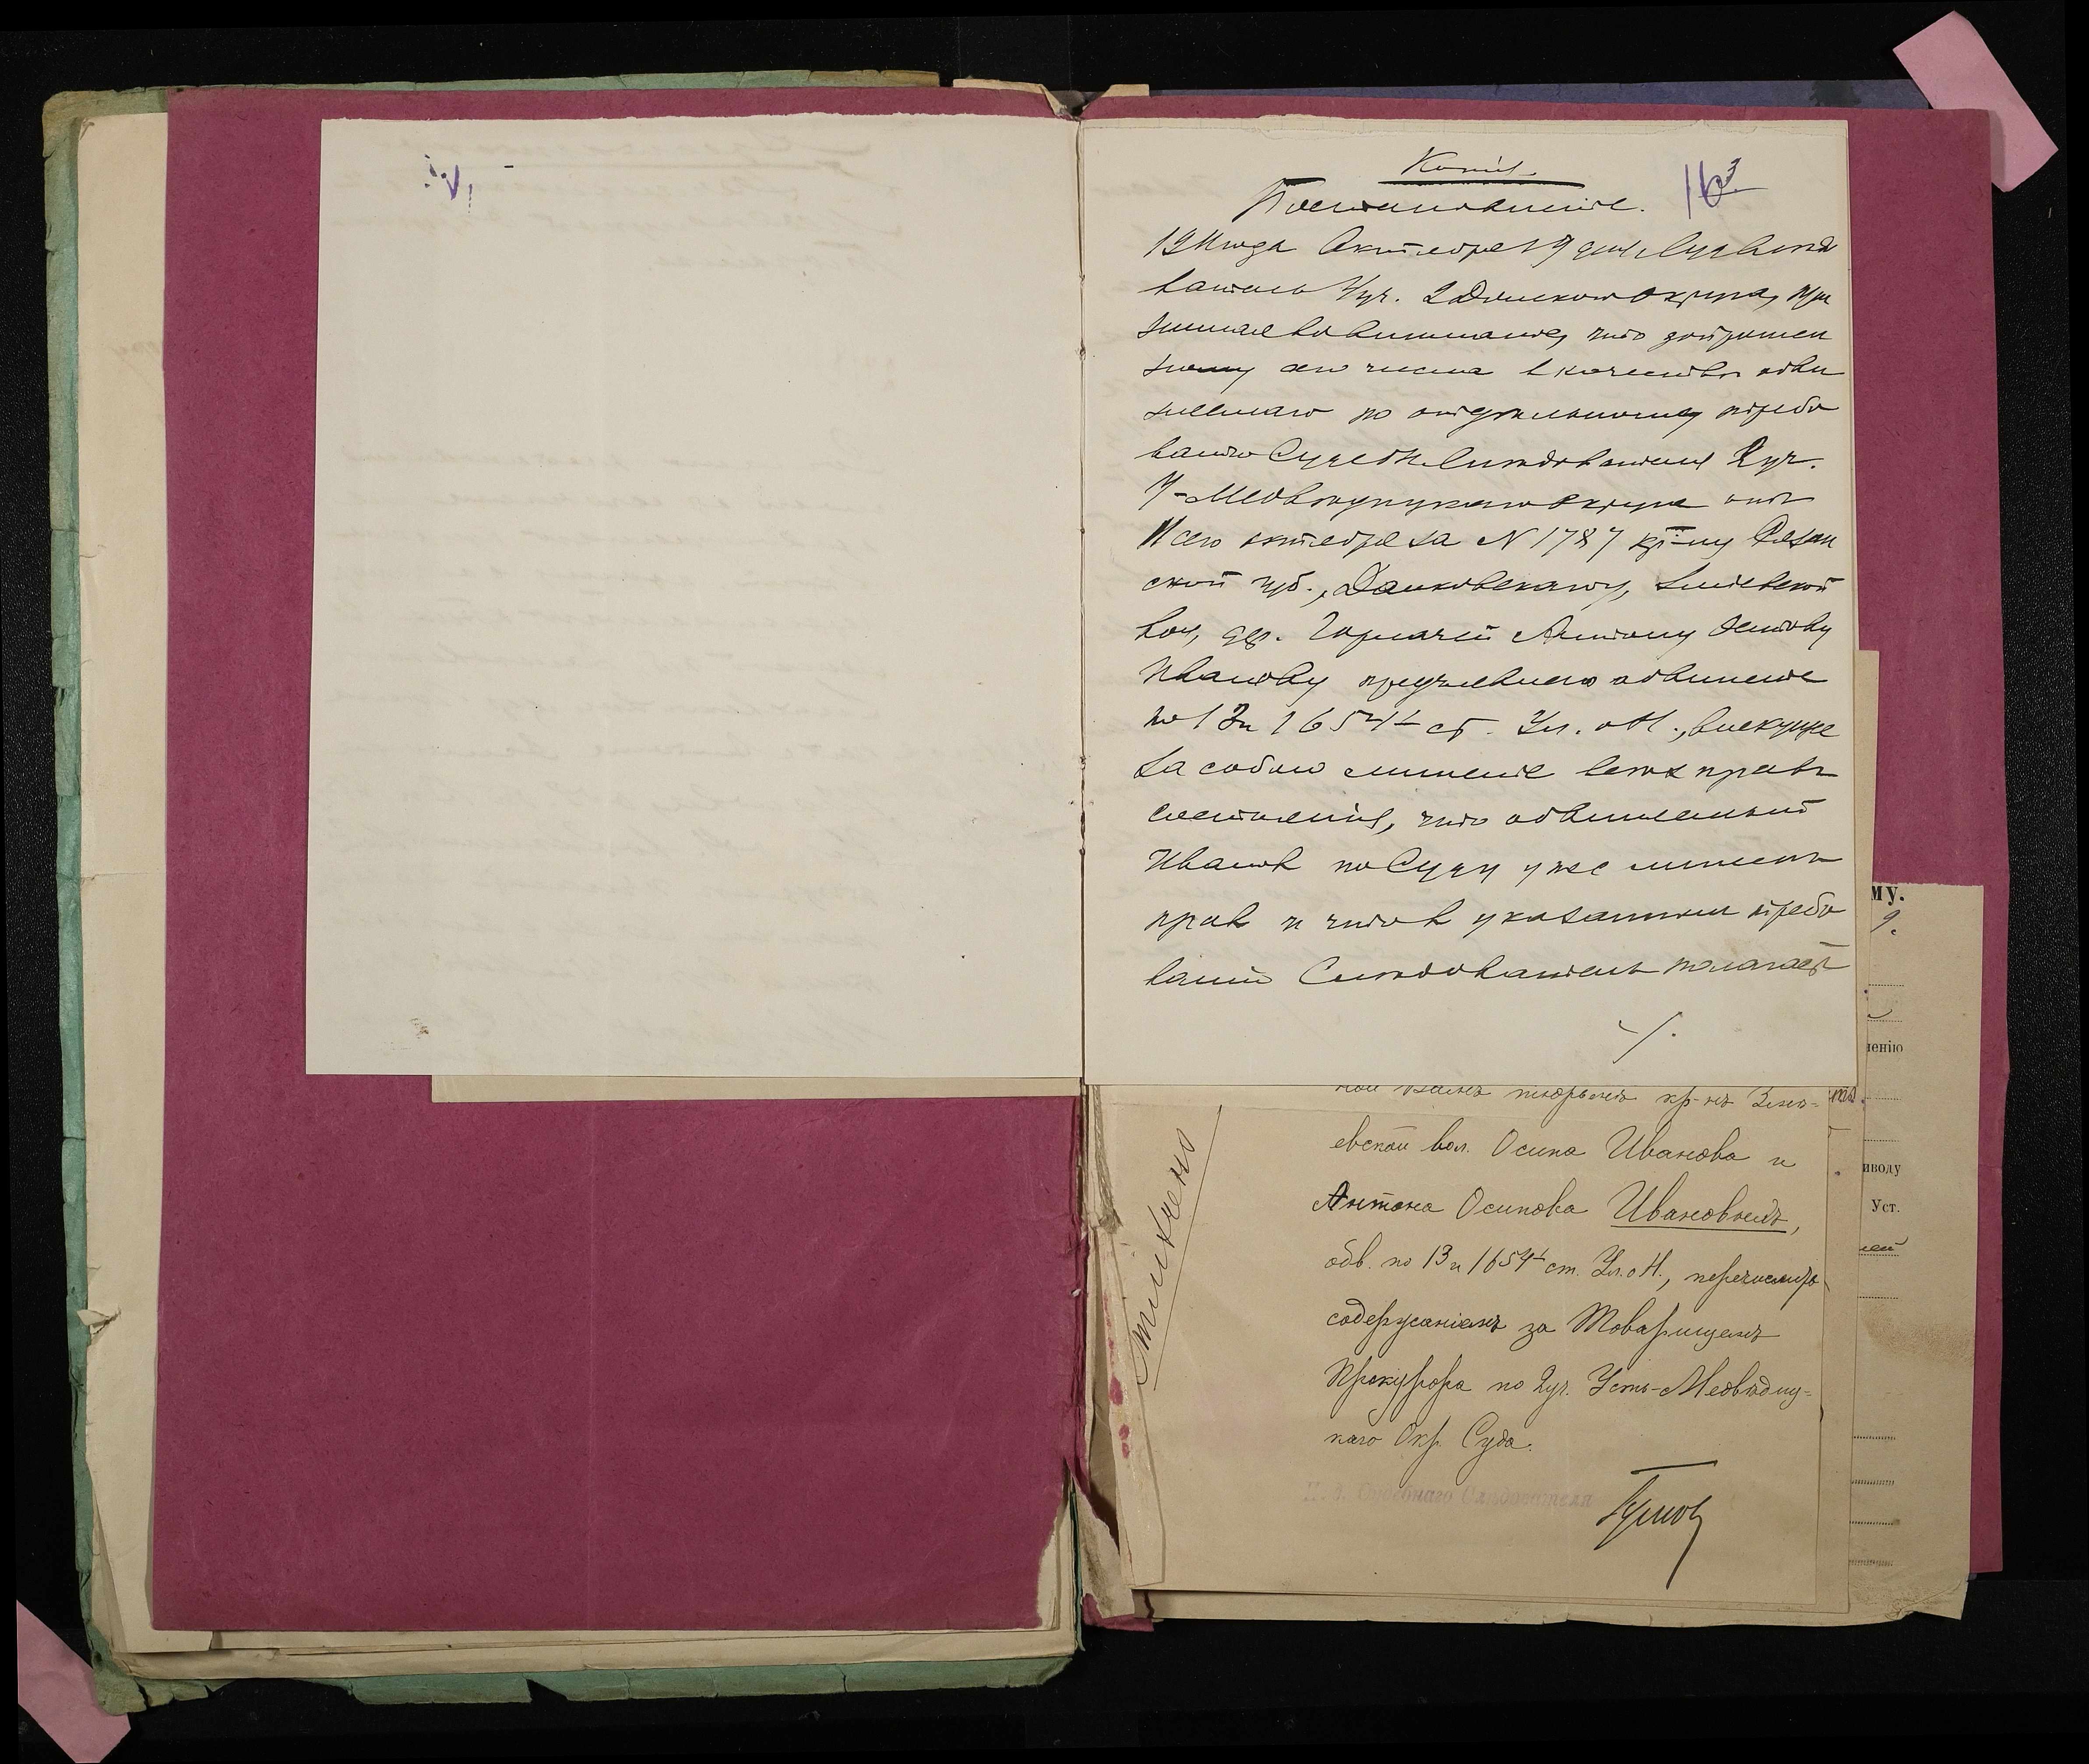 Копія.
Постановленіе.
16 3.
19 года Октября 17 дня Суд. Слѣдо
ватель уч. 2 Донского округа, при
нимая во вниманіе, что допрошен
ному сего числа в качествѣ обви
няемаго по отдѣльному требо
ванію Судебн. Слѣдователя 2 уч.
У-Медвѣдицкаго округа отъ
11 сего октября за N 1787 кр-ну Рязан
ской губ., Данковскаго у, Змievской
вол, дер. Антону Осипову
Иванову предъявлено обвиненіе
по 13 и 1654¹ ст. Ул. о Н., влекущее
за собою лишеніе всѣхъ правъ
состоянія, что обвиняемый
Иванов по Суду уже лишенъ
прав и что в указанном требо
ваніи Слѣдователь полагаетъ
./.
кр-нъ Змѣ-
евской вол. Осипа Иванова и
Антона Осипова Ивановыхъ,
обв. по 13 и 1654¹ ст. Ул. о Н., перечислить
содержаніемъ за Товарищемъ
Прокурора по 2 уч. Усть-Медвѣдиц-
каго Окр. Суда.
И. д. Судебнаго Слѣдователя
му.
9.
ленію
иводу
Уст.